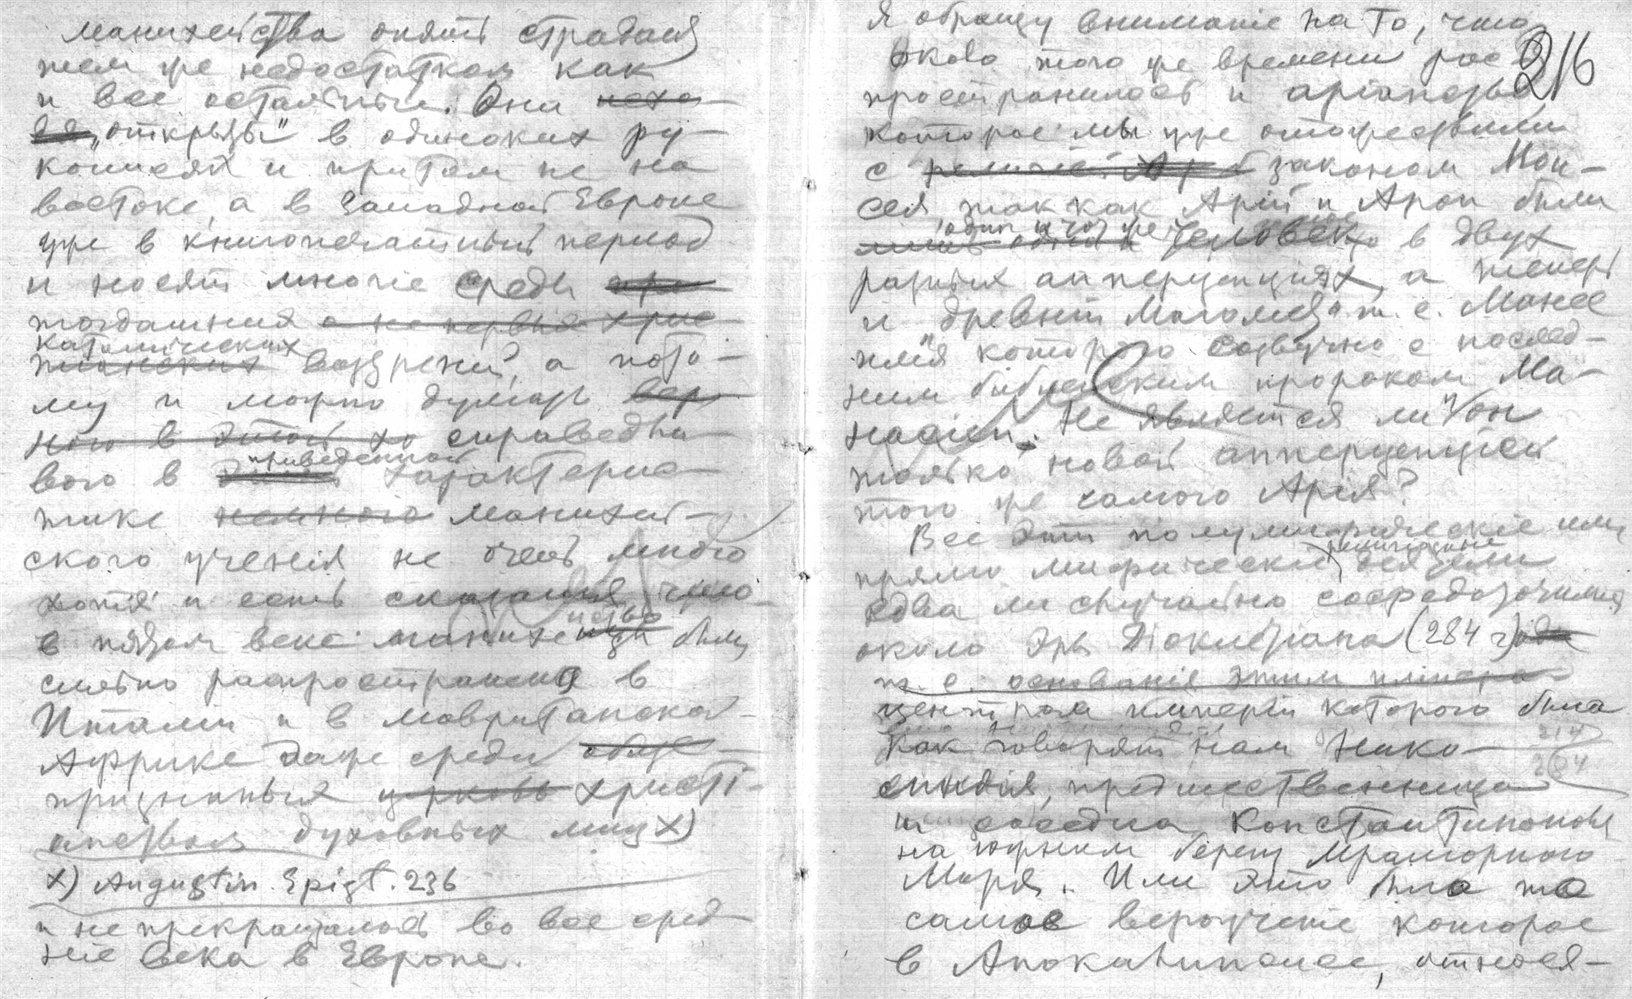 манихейства опять страдают
тем же недостатком как
и все остальные. Они
„открыты" в одиноких ру-
кописях и притом не на
востоке, а в Западной Европе
уже в книгопечатный период
и носят многие следы
тогдашних а не первых хрис
католических
тианских воззрений, а пото-
му и можно думать вер
ного в этой ха справедли
приведенной
вого в характерис-
тике немного манихей-
ского учения не очень много
хотя и есть сказания что
в пятом веке манихейство были
сильно распространено в
Италии и в мавританской
Африке даже среди
признанных церковью христі-
анством духовных лиц х)
х) Augustin. Epist. 236
и не прекращалось во все сред-
ніе века в Европе.
216
Я обращу вниманіе на то, что
около того же времени рас
пространилось и аріанство
которое мы уже отожествили
с религіей законом Мои-
сея, так как Арій и Арон были
один и тот же человек в двух
разных апперцепциях, а теперь
и древній Магомет т. е. Манес
имя которого созвучно с послед-
ним библейским пророком Ма-
насіей. Не является ли и он
только новой апперцепцией
того же самого Арія?
Все эти полумифическіе или
прямо мифически деятели
едва ли случайно сосредоточились
около эры Діоклетіана (284 г)
т. е. основанія этим импера
центром имперіи которого была
как говорят нам Нико-
мидія, предшественница
и соседка Константинополя
на южном берегу Мраморного
Моря. Или это было то
самое вероученіе которое
в Апокалипсисе, относя-